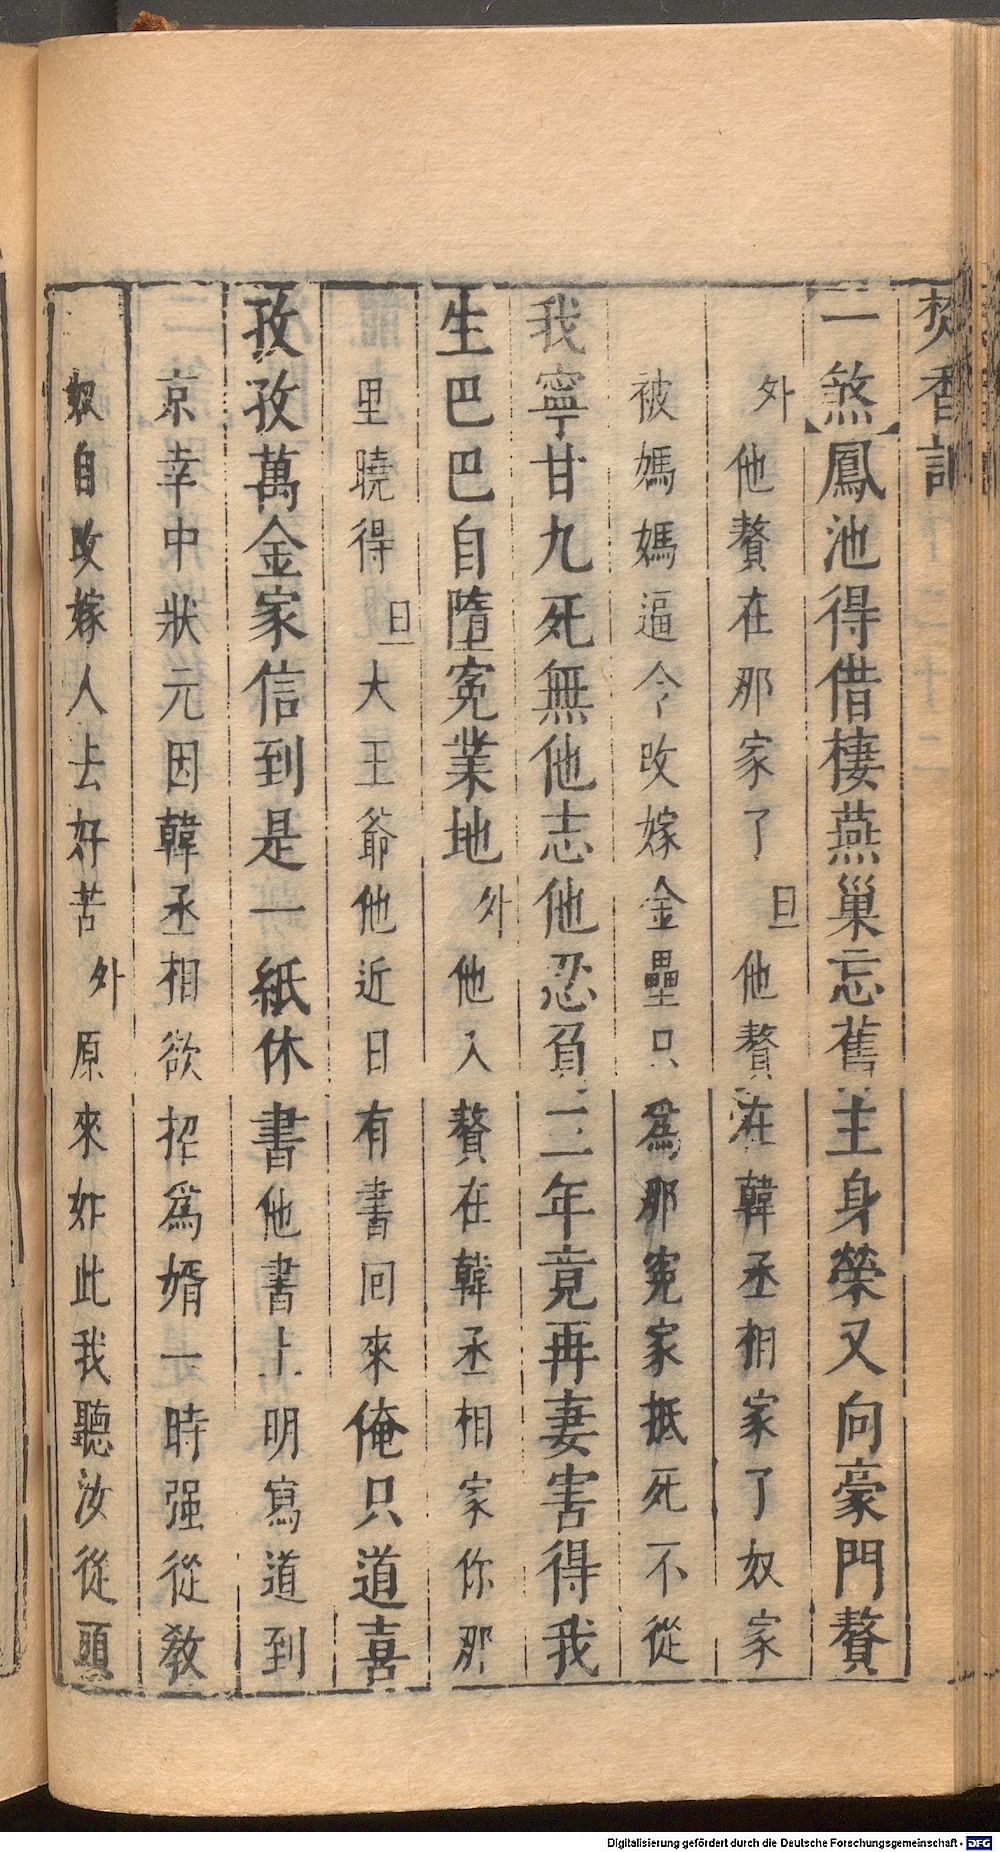 焚香記
二煞鳳池得借棲燕巢忘舊主身榮又向豪門贅
外他贅在那家了旦他贅在韓丞相家了奴家
被媽媽逼令改嫁金壘只爲那寃家抵死不從
我寧甘九死無他志他忍負三年竟再妻害得我
生巴巴自墮寃業地外他入贅在韓丞相家你那
里曉得旦大王爺他近日有書回來俺只道喜
孜孜萬金家信到是一紙休書他書上明寫道到
京幸中狀元因韓丞相欲招爲婿一時强從教
奴自改嫁人去好苦外原來如此我聽汝從頭
Digitalisierung gefördert durch die Deutsche Forschungsgemeinschaft - DFG